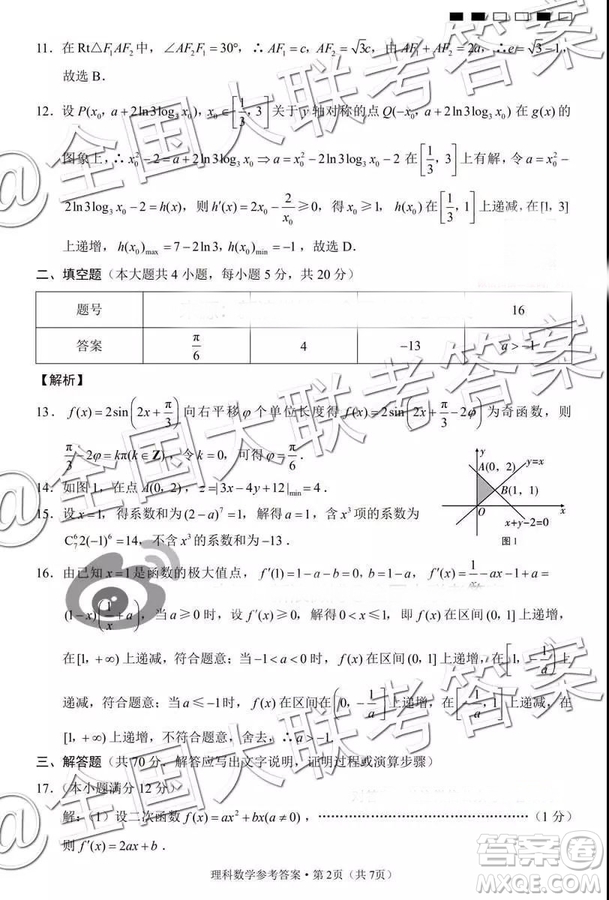 11. 在 Rt△F₁AF₂ 中，∠AF₂F₁ = 30°，∴AF₁ = c，AF₂ = √3c，由 AF₁ + AF₂ = 2a，∴e = √3 − 1．
故选 B．
12. 设 P(x₀, a + 2ln3log₃x₀)，x₀ ∈ [1/3, 3] 关于 y 轴对称的点 Q(−x₀, a + 2ln3log₃x₀) 在 g(x) 的
图象上，∴x₀² − 2 = a + 2ln3log₃x₀ ⇒ a = x₀² − 2ln3log₃x₀ − 2 在 [1/3, 3] 上有解，令 a = x₀² −
2ln3log₃x₀ − 2 = h(x)，则 h′(x) = 2x₀ − 2/x₀ ≥ 0，得 x₀ ≥ 1，h(x) 在 [1/3, 1] 上递减，在 [1, 3]
上递增，h(x₀)max = 7 − 2ln3，h(x₀)min = −1，故选 D．
二、填空题（本大题共 4 小题，每小题 5 分，共 20 分）
题号 16
答案 π/6 4 −13 a > −1
【解析】
13. f(x) = 2sin(2x + π/3) 向右平移 φ 个单位长度得 f(x) = 2sin(2x + π/3 − 2φ) 为奇函数，则
π/3 − 2φ = kπ(k ∈ Z)，令 k = 0，可得 φ = π/6．
14. 如图 1，在点 A(0, 2)，z = |3x − 4y + 12|min = 4．
15. 设 x = 1，得系数和为 (2 − a)⁷ = 1，解得 a = 1，含 x³ 项的系数为
C₇⁶2(−1)⁶ = 14，不含 x³ 的系数和为 −13．
y
y=x
A(0, 2)
B(1, 1)
O
x
x+y−2=0
图 1
16. 由已知 x = 1 是函数的极大值点，f′(1) = 1 − a − b = 0, b = 1 − a，f′(x) = 1/x − ax − 1 + a =
(1 − x)(1/x + a)，当 a ≥ 0 时，设 f′(x) ≥ 0，解得 0 < x ≤ 1，即 f(x) 在区间 (0, 1) 上递增，
在[1, +∞) 上递减，符合题意；当 −1 < a < 0 时，f(x) 在区间 (0, 1) 上递增，在 [1, −1/a] 上
递减，符合题意；当 a ≤ −1 时，f(x) 在区间 (0, −1/a] 上递增，在区间 [−1/a, 1] 上递减，在
[1, +∞) 上递增，不符合题意，舍去，∴a > −1．
三、解答题（共 70 分．解答应写出文字说明，证明过程或演算步骤）
17.（本小题满分 12 分）
解：（1）设二次函数 f(x) = ax² + bx(a ≠ 0)，……………………………………（1 分）
则 f′(x) = 2ax + b．
理科数学参考答案・第 2页（共 7页）
@全国大联考答案
@全国大联考答案
@全国大联考答案
答案圈
MXQE.COM